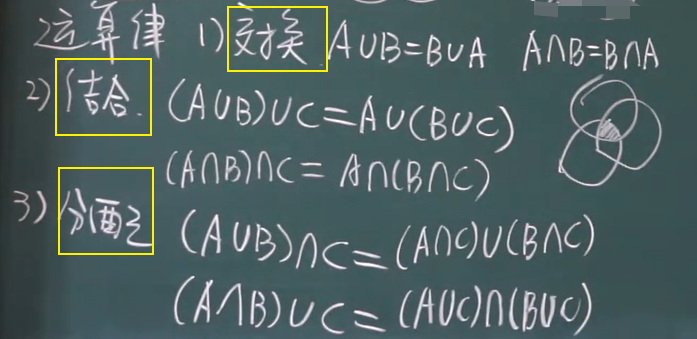 运算律 1) 交换. A∪B=B∪A A∩B=B∩A
2) 结合. (A∪B)∪C=A∪(B∪C)
(A∩B)∩C=A∩(B∩C)
3) 分配 (A∪B)∩C=(A∩C)∪(B∩C)
(A∩B)∪C=(A∪C)∩(B∪C)